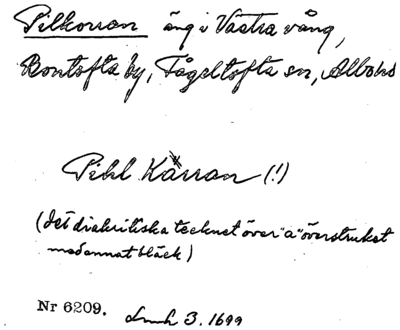 Pilkorran äng i Västra vång,
Bontofta by, Tågeltofta sn, Albohd
Pihl Kärran (!)
(det diakritiska tecknet över "a" överstruket
med annat bläck)
Nr 6209. Lmk 3. 1699